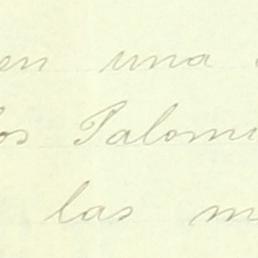 en una
los Palomi
las m